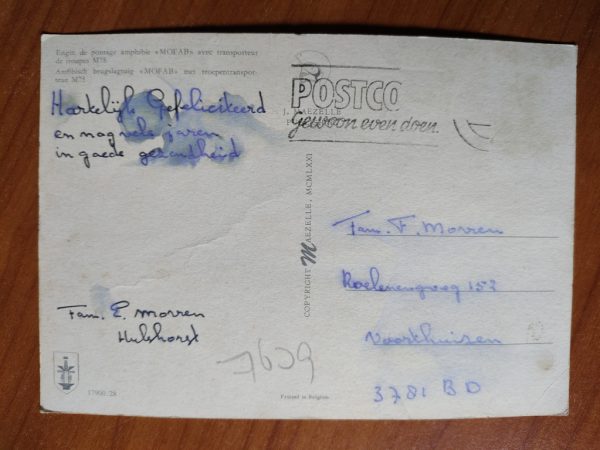 Engin de pontage amphibie «MOFAB» avec transporteur
de troupes M75
Amfibisch brugslagtuig «MOFAB» met troepentranspor-
teur M75
Hartelijk Gefeliciteerd
en nog vele jaren
in goede gezondheid
Fam. E. Morren
Hulshorst
17900/28
COPYRIGHT MAEZELLE, MCMLXXI
J. MAEZELLE
POSTCO
gewoon even doen.
Fam. F. Morren
152
Voorthuizen
3781 BD
7609
Printed in Belgium